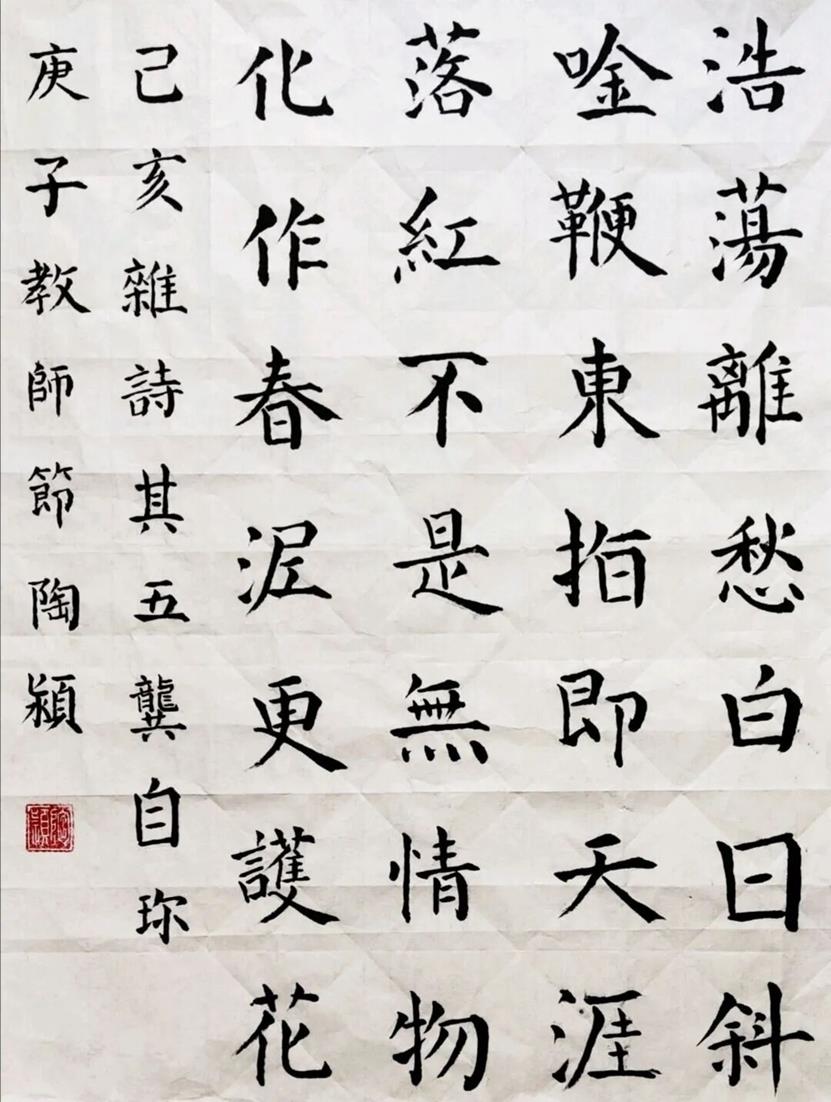 浩蕩離愁白日斜
唫鞭東指即天涯
落紅不是無情物
化作春泥更護花
己亥雜詩其五龔自珍
庚子教師節陶潁